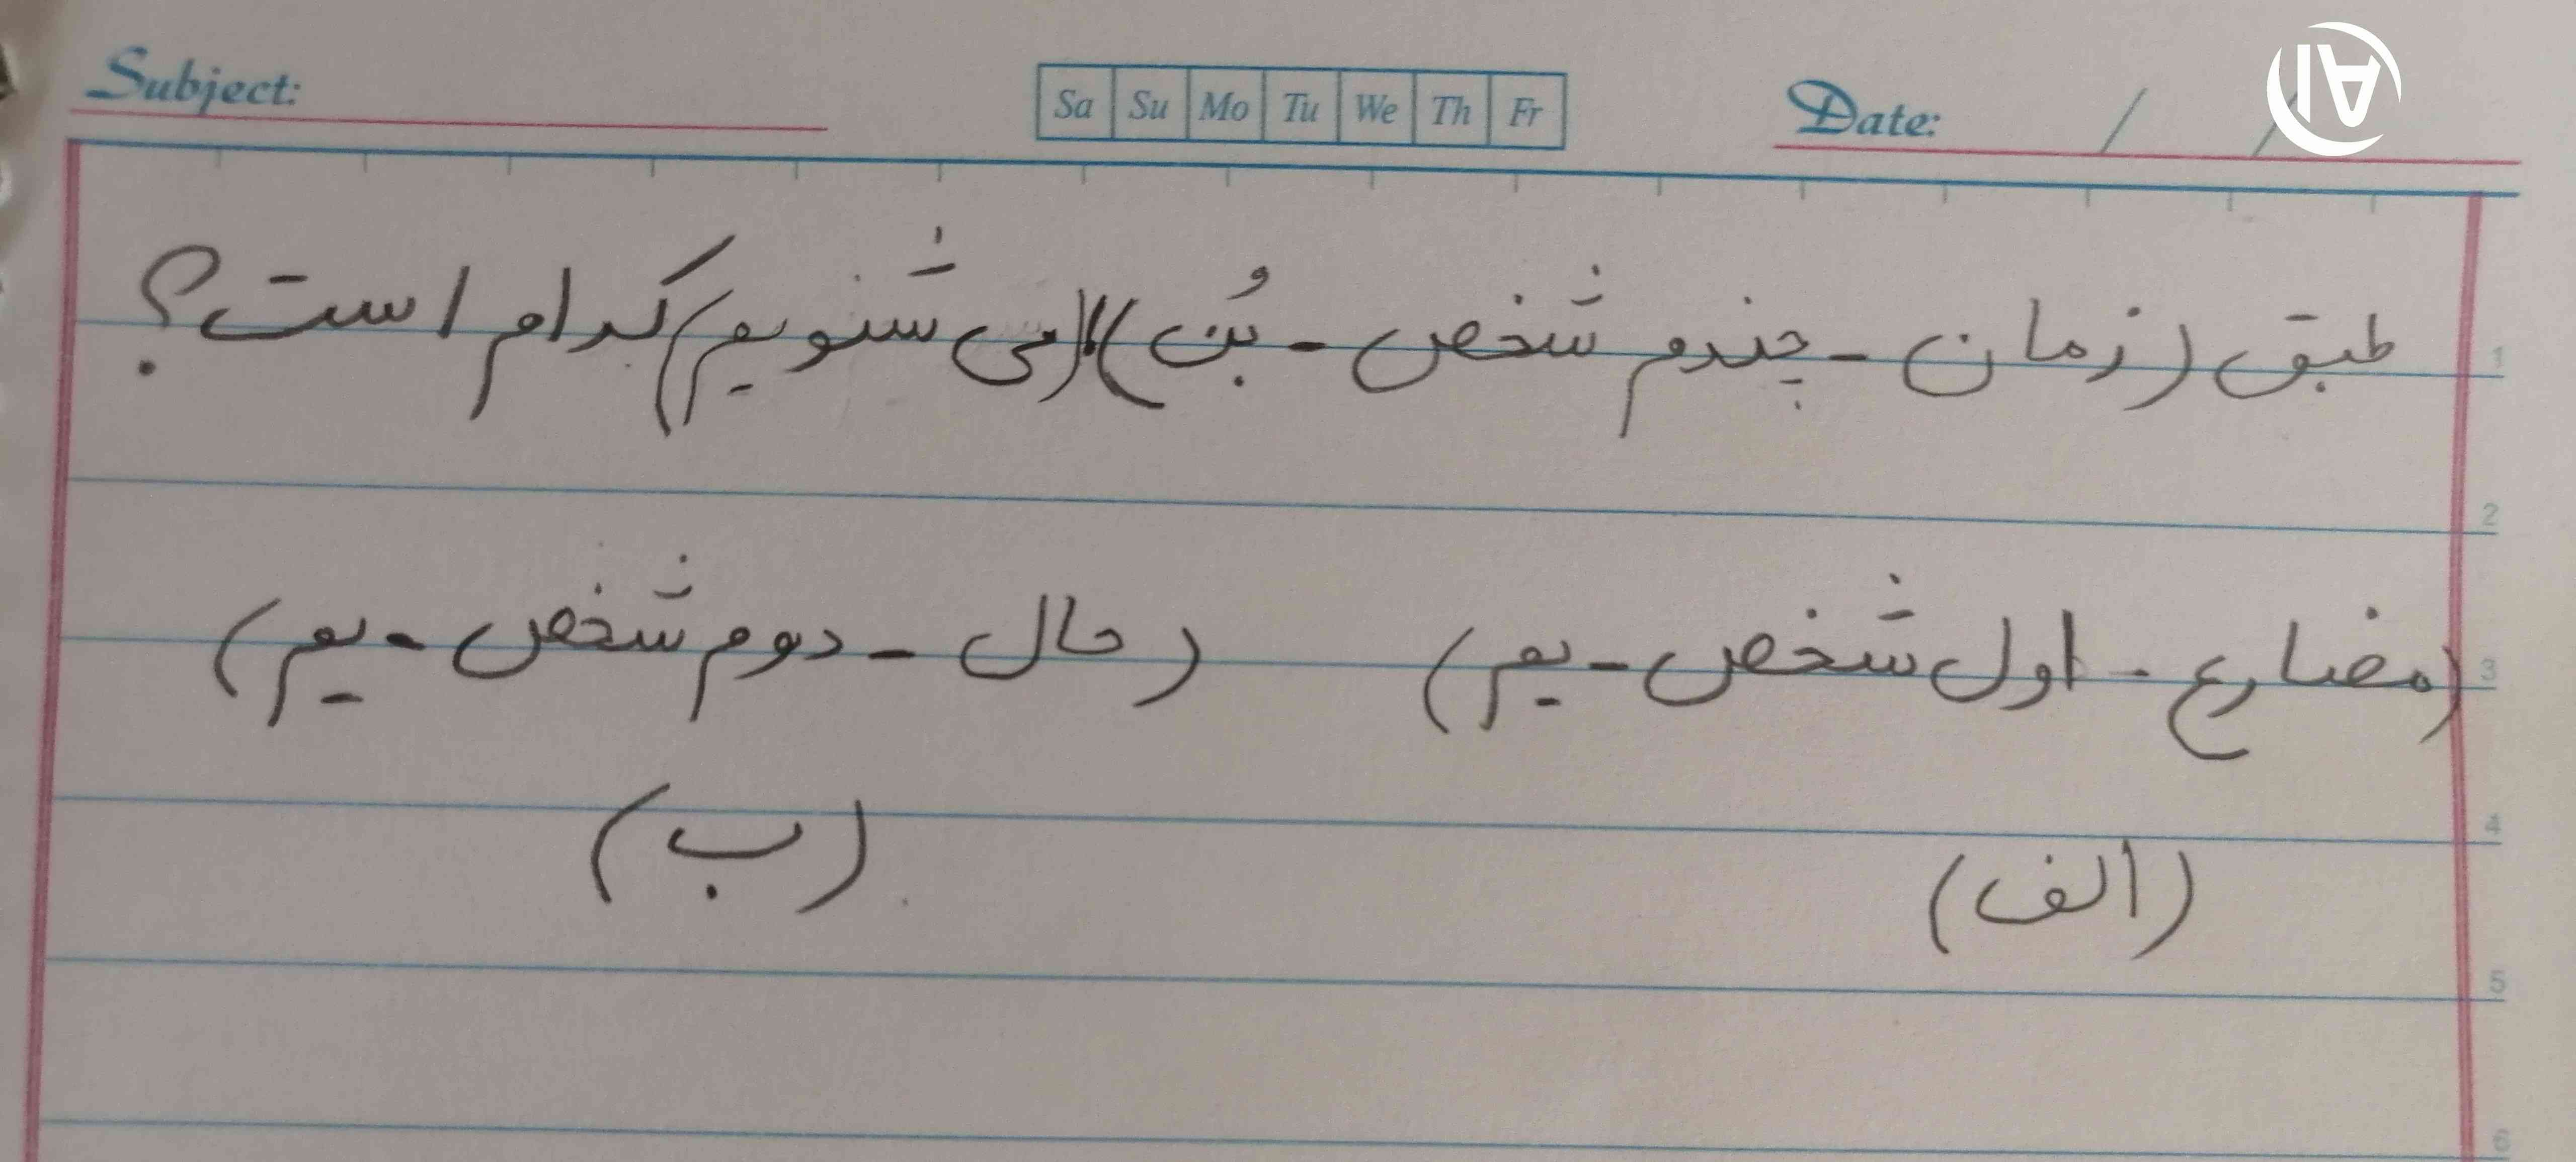 Subject: Sa Su Mo Tu We Th Fr Date: / /
AI
طبق (زمان - چندم شخص - بُن) (می شنویم) کدام است؟
1
2
(مضارع - اول شخص - یم) (حال - دوم شخص - یم)
3
(الف) (ب)
4
5
6